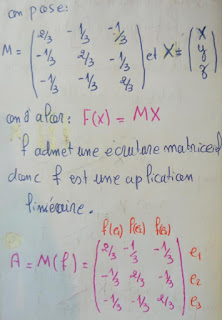 on pose:
M = ( 2/3 -1/3 -1/3
-1/3 2/3 -1/3
-1/3 -1/3 2/3 ) et X = ( x
y
z )
on a alors: F(X) = MX
f admet une écriture matricielle
donc f est une application
linéaire.
f(e₁) f(e₂) f(e₃)
A = M(f) = ( 2/3 -1/3 -1/3 ) e₁
-1/3 2/3 -1/3 e₂
-1/3 -1/3 2/3 e₃